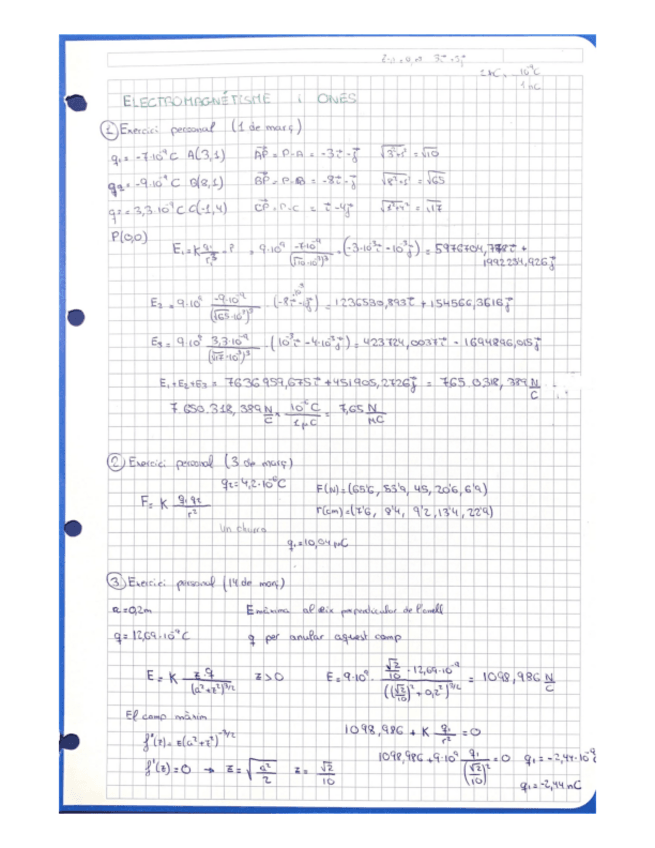 1 nC 10⁻⁹C
1 nC
ELECTROMAGNÈTISME i ONES
① Exercici personal (1 de març)
q₁ = -7·10⁻⁹ C A(3,1) AP = P-A = -3i - j √3²+1² = √10
q₂ = -9·10⁻⁹ C B(8,1) BP = P-B = -8i - j √8²+1² = √65
q = 3,3·10⁻⁹ C C(-1,4) CP = P-C = i - 4j = √17
P(0,0)
E₁ = K q₁/r³ = ? = 9·10⁹ -7·10⁻⁹/(√10·10⁻³)³ · (-3·10⁻³i - 10⁻³j) = 5976704,778i +
1992234,926j
E₂ = 9·10⁹ -9·10⁻⁹/(√65·10⁻³)³ · (-8i - j) = 1236530,893i + 154566,3616j
E₃ = 9·10⁹ 3,3·10⁻⁹/(√17·10⁻³)³ · (10⁻³i - 4·10⁻³j) = 423724,0037i - 1694896,015j
E₁+E₂+E₃ = 7636959,675i + 451905,2726j = 765.0318,389 N/C
7 650.318,389 N/C × 10⁻⁶C/1μC = 7,65 N/μC
② Exercici personal (3 de març)
q₂ = 4,2·10⁻⁶C F(N) = (65'6, 53'9, 45, 20'6, 6'9)
F = K q₁ q₂/r² r(cm) = (7'6, 8'4, 9'2, 13'4, 22'9)
Un churro
q₁ = 10,04 μC
③ Exercici personal (14 de març)
a = 0,2m E màxima al eix perpendicular de l'anell
q = 12,69·10⁻⁹ C q per anular aquest camp
E = K z·q/(a²+z²)³/² z>0 E = 9·10⁹ · √2/10 · 12,69·10⁻⁹/((√2/10)² + 0,2²)³/² = 1098,986 N/C
El camp màxim
1098,986 + K q₁/r² = 0
f'(z) = z(a²+z²)⁻³/²
1098,986 + 9·10⁹ q₁/(√2/10)² = 0 q₁ = -2,44·10⁻⁹
f'(z) = 0 → z = √a²/2 z = √2/10
q₁ = -2,44 nC